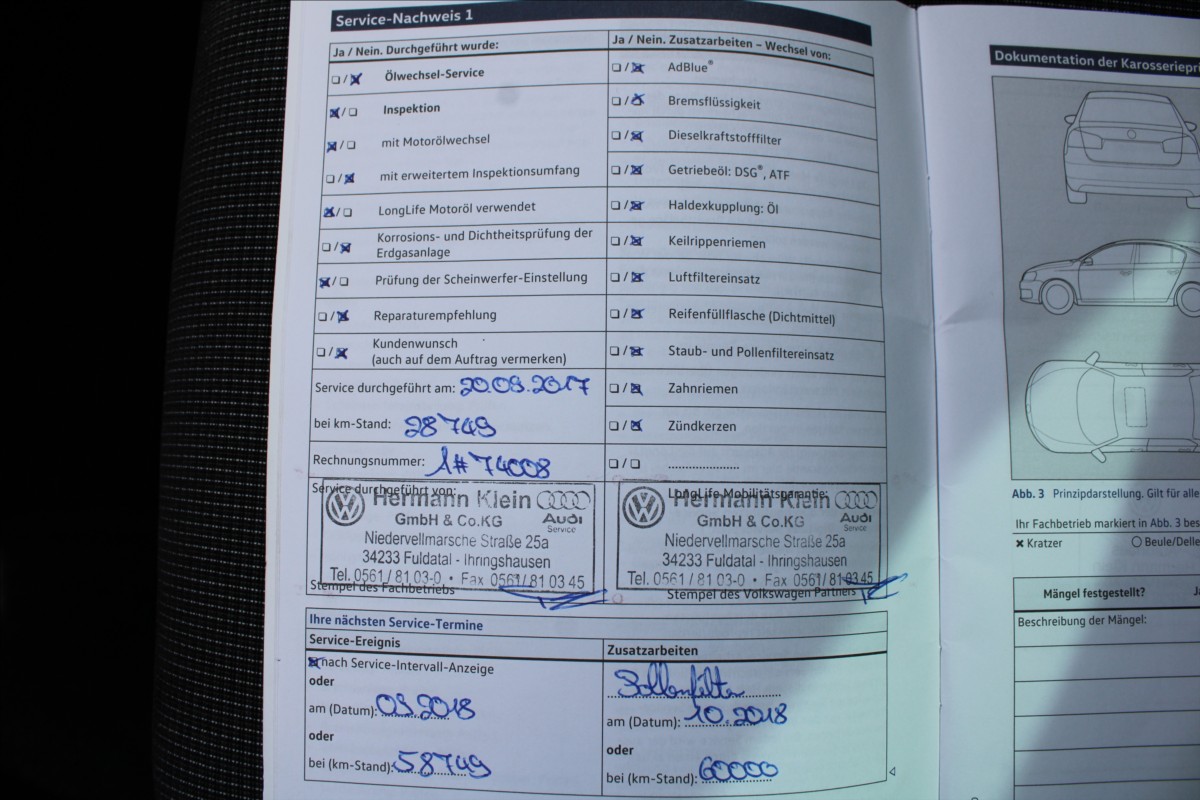 Service-Nachweis 1
Ja / Nein. Durchgeführt wurde:
Ölwechsel-Service
Inspektion
mit Motorölwechsel
mit erweitertem Inspektionsumfang
LongLife Motoröl verwendet
Korrosions- und Dichtheitsprüfung der
Erdgasanlage
Prüfung der Scheinwerfer-Einstellung
Reparaturempfehlung
Kundenwunsch
(auch auf dem Auftrag vermerken)
Service durchgeführt am: 20.09.2017
bei km-Stand: 28749
Rechnungsnummer: 1#74008
Service durchgeführt von:
Hermann Klein
GmbH & Co.KG
Audi
Service
Niedervellmarsche Straße 25a
34233 Fuldatal - Ihringshausen
Tel. 0561 / 81 03-0 • Fax 0561/ 81 03 45
Stempel des Fachbetriebs
Ja / Nein. Zusatzarbeiten – Wechsel von:
AdBlue®
Bremsflüssigkeit
Dieselkraftstofffilter
Getriebeöl: DSG®, ATF
Haldexkupplung: Öl
Keilrippenriemen
Luftfiltereinsatz
Reifenfüllflasche (Dichtmittel)
Staub- und Pollenfiltereinsatz
Zahnriemen
Zündkerzen
LongLife Mobilitätsgarantie:
Hermann Klein
GmbH & Co.KG
Audi
Service
Niedervellmarsche Straße 25a
34233 Fuldatal - Ihringshausen
Tel. 0561 / 81 03-0 • Fax 0561/ 81 03 45
Stempel des Volkswagen Partners
Ihre nächsten Service-Termine
Service-Ereignis
nach Service-Intervall-Anzeige
oder
am (Datum): 09.2018
oder
bei (km-Stand): 58749
Zusatzarbeiten
Pollenfilter
am (Datum): 10.2018
oder
bei (km-Stand): 60000
Dokumentation der
Abb. 3 Prinzipdarstellung. Gilt für alle
Ihr Fachbetrieb markiert in Abb. 3
Kratzer
Beule/Delle
Mängel festgestellt?
Beschreibung der Mängel: